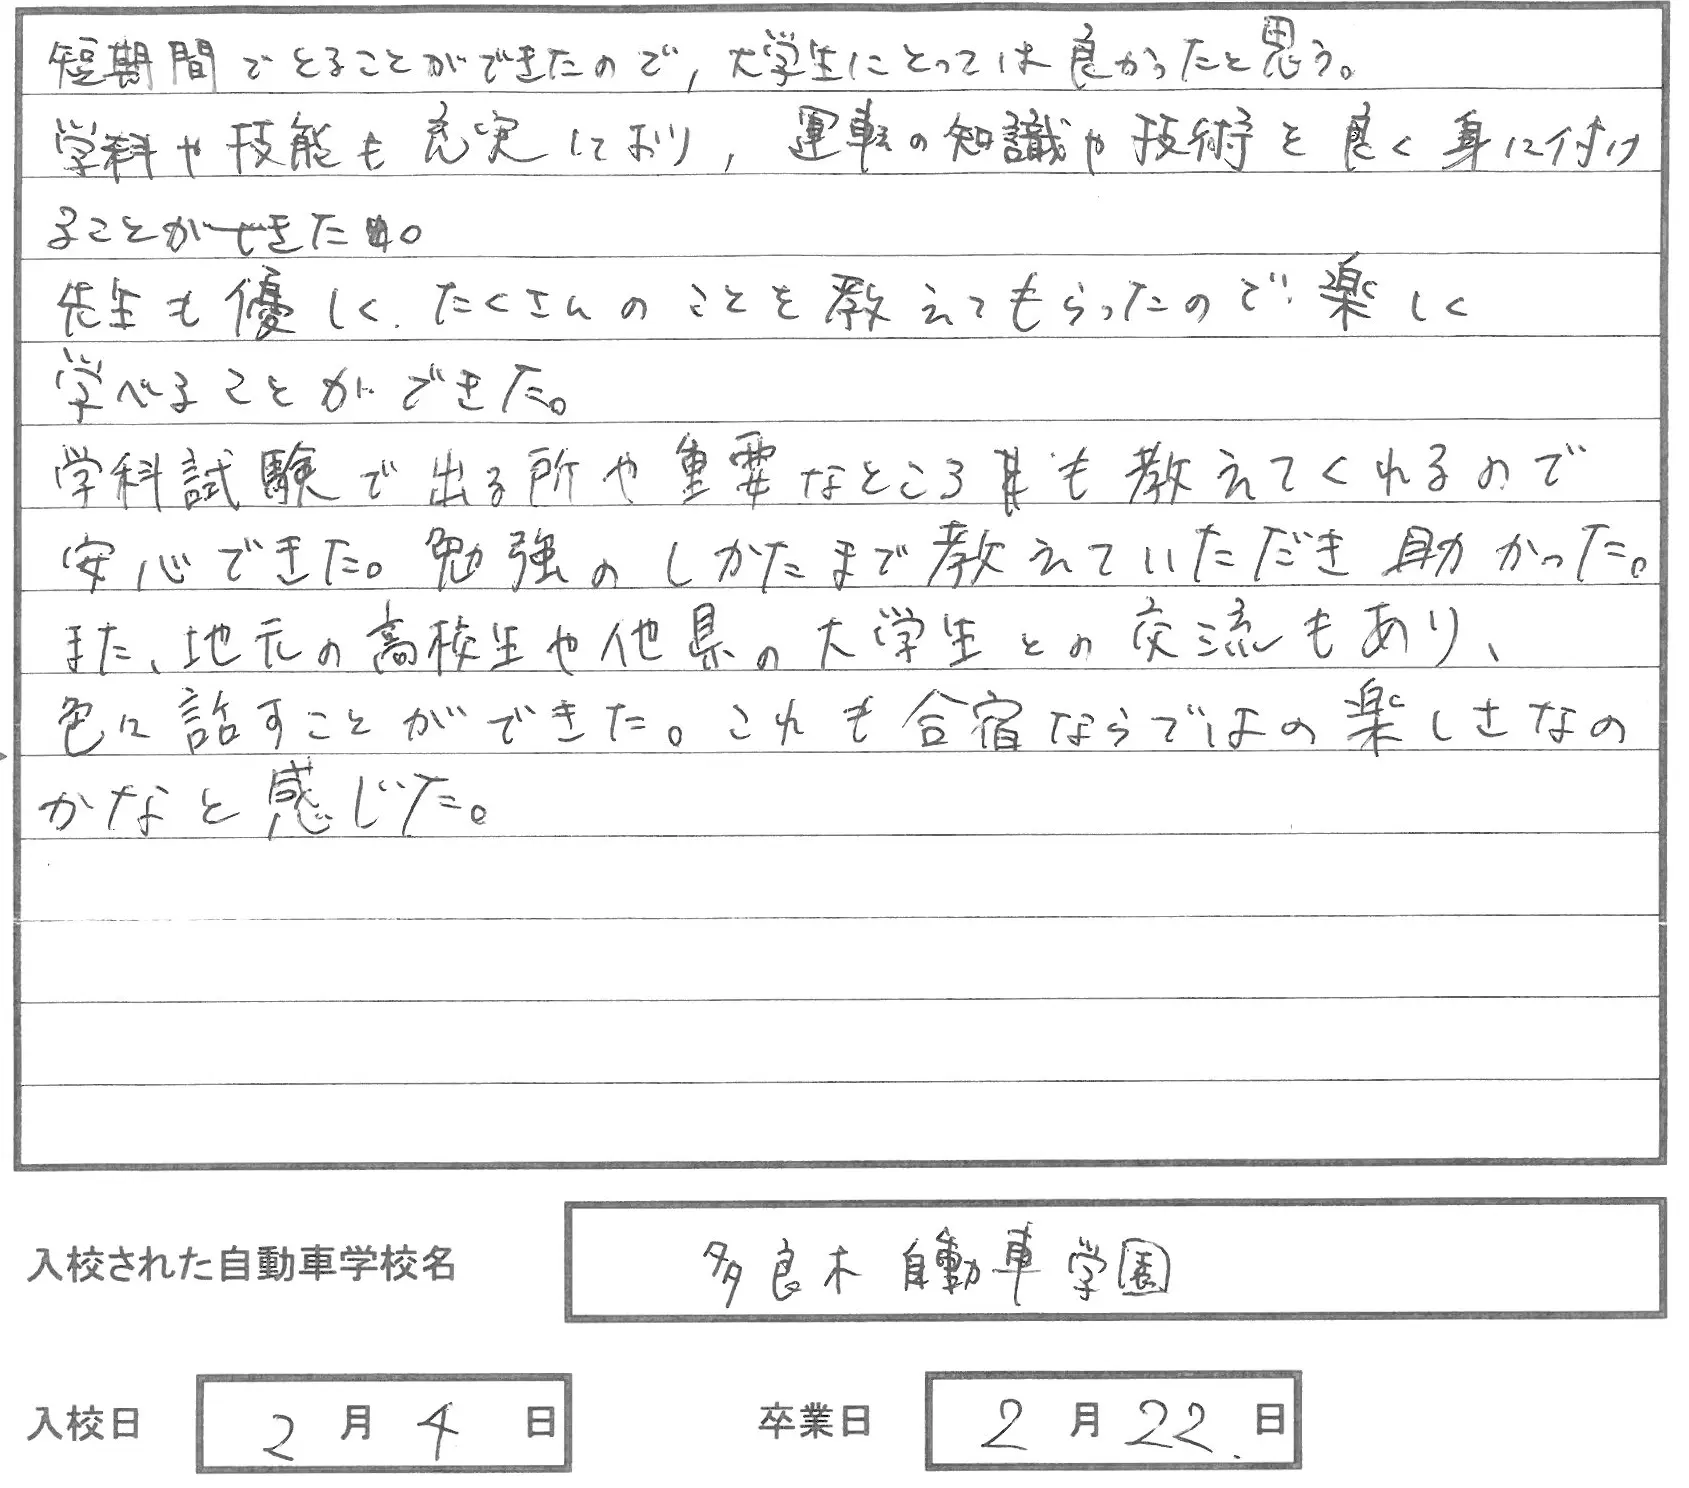 短期間でとることができたので,大学生にとっては良かったと思う。
学科や技能も充実しており,運転の知識や技術を良く身に付け
ることができた。
先生も優しく、たくさんのことを教えてもらったので、楽しく
学べることができた。
学科試験で出る所や重要なところも教えてくれるので
安心できた。勉強のしかたまで教えていただき助かった。
また、地元の高校生や他県の大学生との交流もあり、
色々話すことができた。これも合宿ならではの楽しさなの
かなと感じた。
入校された自動車学校名 多良木自動車学園
入校日 2月4日 卒業日 2月22日